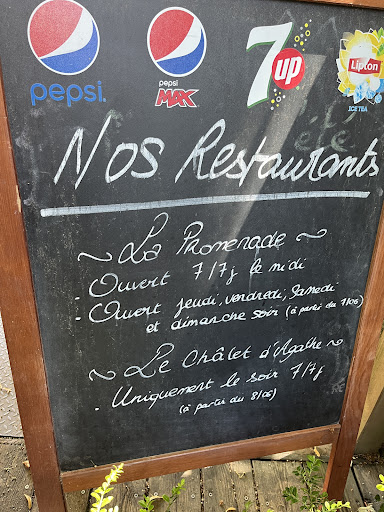 pepsi.
pepsi
MAX
7up
Lipton
ICE TEA
été
Nos Restaurants
~ La Promenade ~
- Ouvert 7/7j le midi
- Ouvert jeudi, vendredi, Samedi
et dimanche soir (à partir du 7/06)
~ Le Châlet d'Agathe ~
- Uniquement le soir 7/7j
(à partir du 8/06)